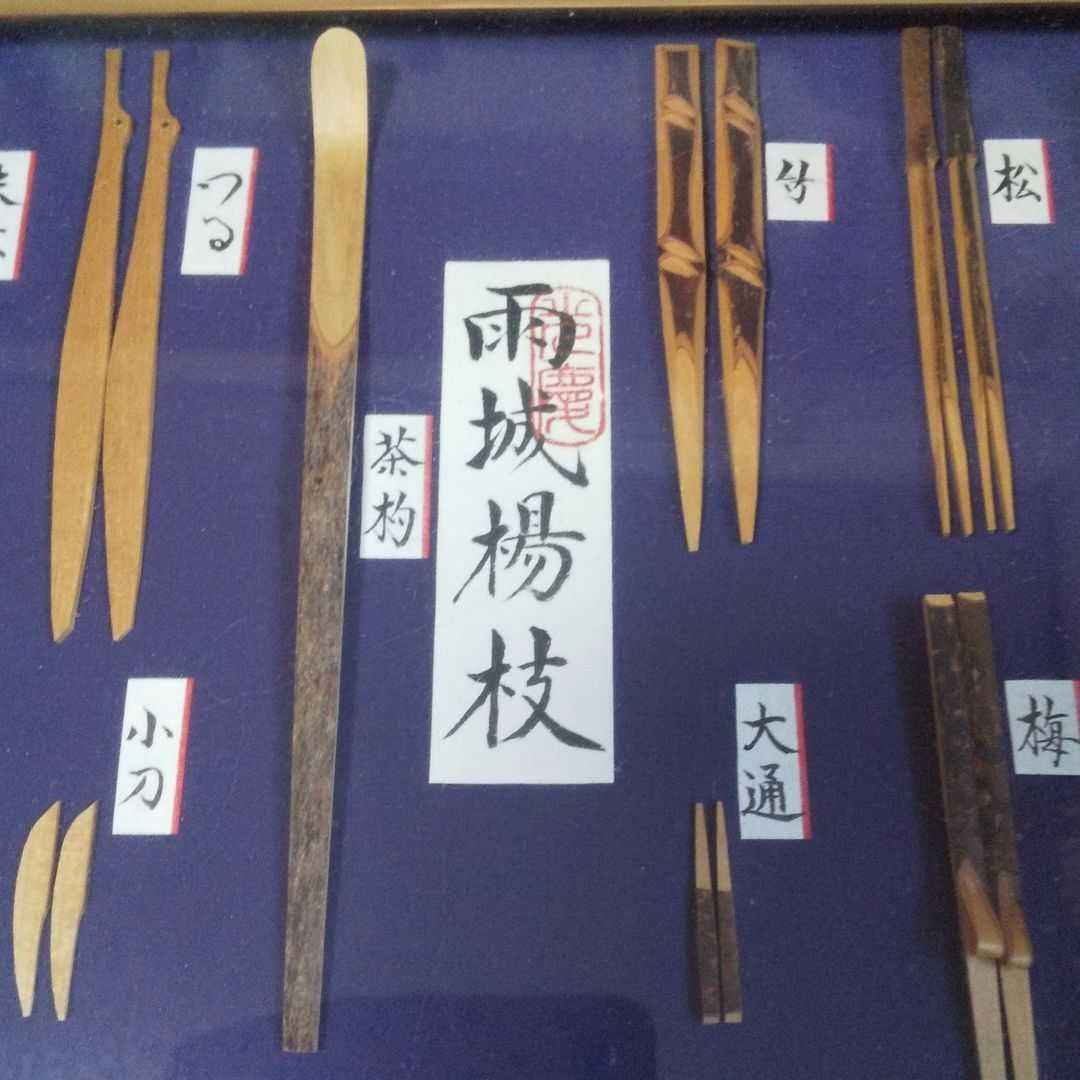 松
竹
雨城楊枝
茶杓
つる
梅
大通
小刀